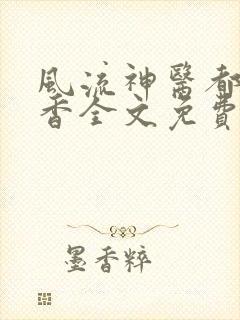 風流神醫都
香全文免費
墨香粹